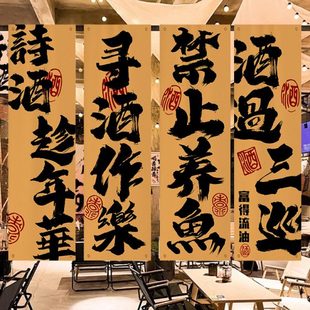 酒過三巡
富得流油
酒
禁止养魚
酒
寻酒作樂
酒
詩酒趁年華
酒